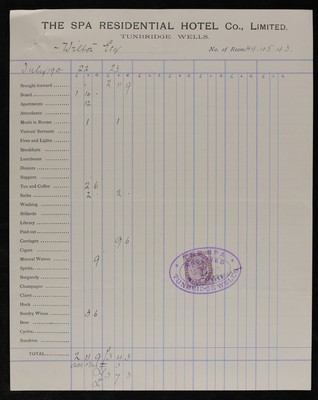 THE SPA RESIDENTIAL HOTEL Co., LIMITED.
TUNBRIDGE WELLS.
Wilson Esq No. of Room 44.45.43.
July 190 22 23
Brought forward 2 11 9
Board 1 10 -
Apartments 12
Attendance
Meals in Rooms 1 1
Visitors' Servants
Fires and Lights
Breakfasts
Luncheons
Dinners
Suppers
Tea and Coffee 2 6
Baths 2 2 -
Washing
Billiards
Library
Paid out
Carriages 9 6
Cigars
Mineral Waters 9
Spirits
Burgundy
Champagne
Claret
Hock
Sundry Wines 3 6
Beer
Cyder
Sundries
THE SPA
RECEIVED
TUNBRIDGE WELLS
TOTAL 2 11 9 3 4 3
3
3 7 3